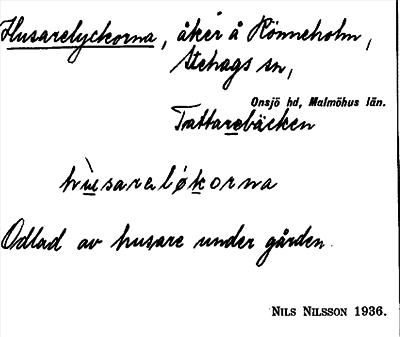 Husarelyckorna, åker å Rönneholm,
Stehags sn,
Onsjö hd, Malmöhus län.
Tattarebäcken
hùsareløkorna
Odlad av husare under gården.
NILS NILSSON 1936.